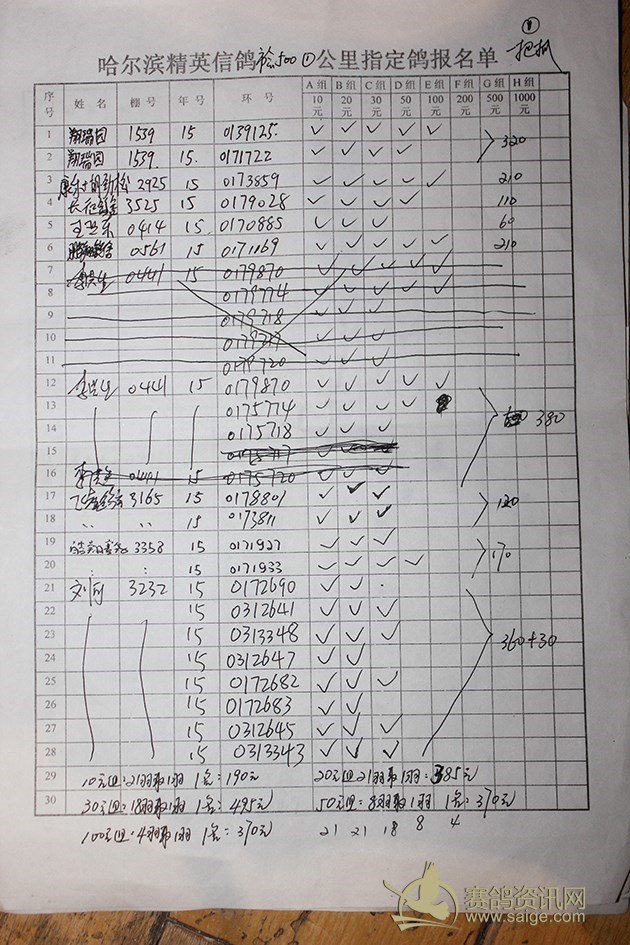 ①
哈尔滨精英信鸽 500 ① 公里指定鸽报名单
序号 姓名 棚号 年号 环号 A组10元 B组20元 C组30元 D组50元 E组100元 F组200元 G组500元 H组1000元
1 翔瑞园 1539 15 0139125 ✓ ✓ ✓ ✓ ✓
2 翔瑞园 1539. 15. 0171722 ✓ ✓ ✓ ✓ 320
3 2925 15 0173859 ✓ ✓ ✓ ✓ ✓ 210
4 3525 15 0179028 ✓ ✓ ✓ ✓ 110
5 0414 15 0170885 ✓ ✓ ✓ 60
6 0561 15 0171169 ✓ ✓ ✓ ✓ ✓ 210
7 0441 15 0179870 ✓ ✓ ✓ ✓ ✓
8 0179774 ✓ ✓ ✓ ✓
9 0179718 ✓ ✓ ✓
10 ✓ ✓ ✓
11 0179720 ✓ ✓ ✓
12 0441 15 0179870 ✓ ✓ ✓ ✓ ✓
13 0175774 ✓ ✓ ✓ ✓
14 0175718 ✓ ✓ ✓ 380
15
16 15 0175720
17 3165 15 0178801 ✓ ✓ ✓
18 〃 〃 15 0173811 ✓ ✓ ✓ 120
19 3358 15 0171927 ✓ ✓ ✓
20 : : 15 0171933 ✓ ✓ ✓ ✓ 170
21 3232 15 0172690 ✓ ✓ .
22 15 0312641 ✓ ✓ ✓
23 15 0313348 ✓ ✓ ✓ 360+30
24 15 0312647 ✓ ✓
25 15 0172682 ✓ ✓ ✓
26 15 0172683 ✓ ✓
27 15 0312645 ✓ ✓ ✓
28 15 0313343 ✓ ✓ ✓
29 10元组:21羽取1羽 1名:190元 20元组:21羽取1羽:385元
30 30元组:18羽取1羽 1名:495元 50元组:8羽取1羽 1名:370元
100元组:4羽取1羽 1名:370元 21 21 18 8 4
赛鸽资讯网
www.saige.com